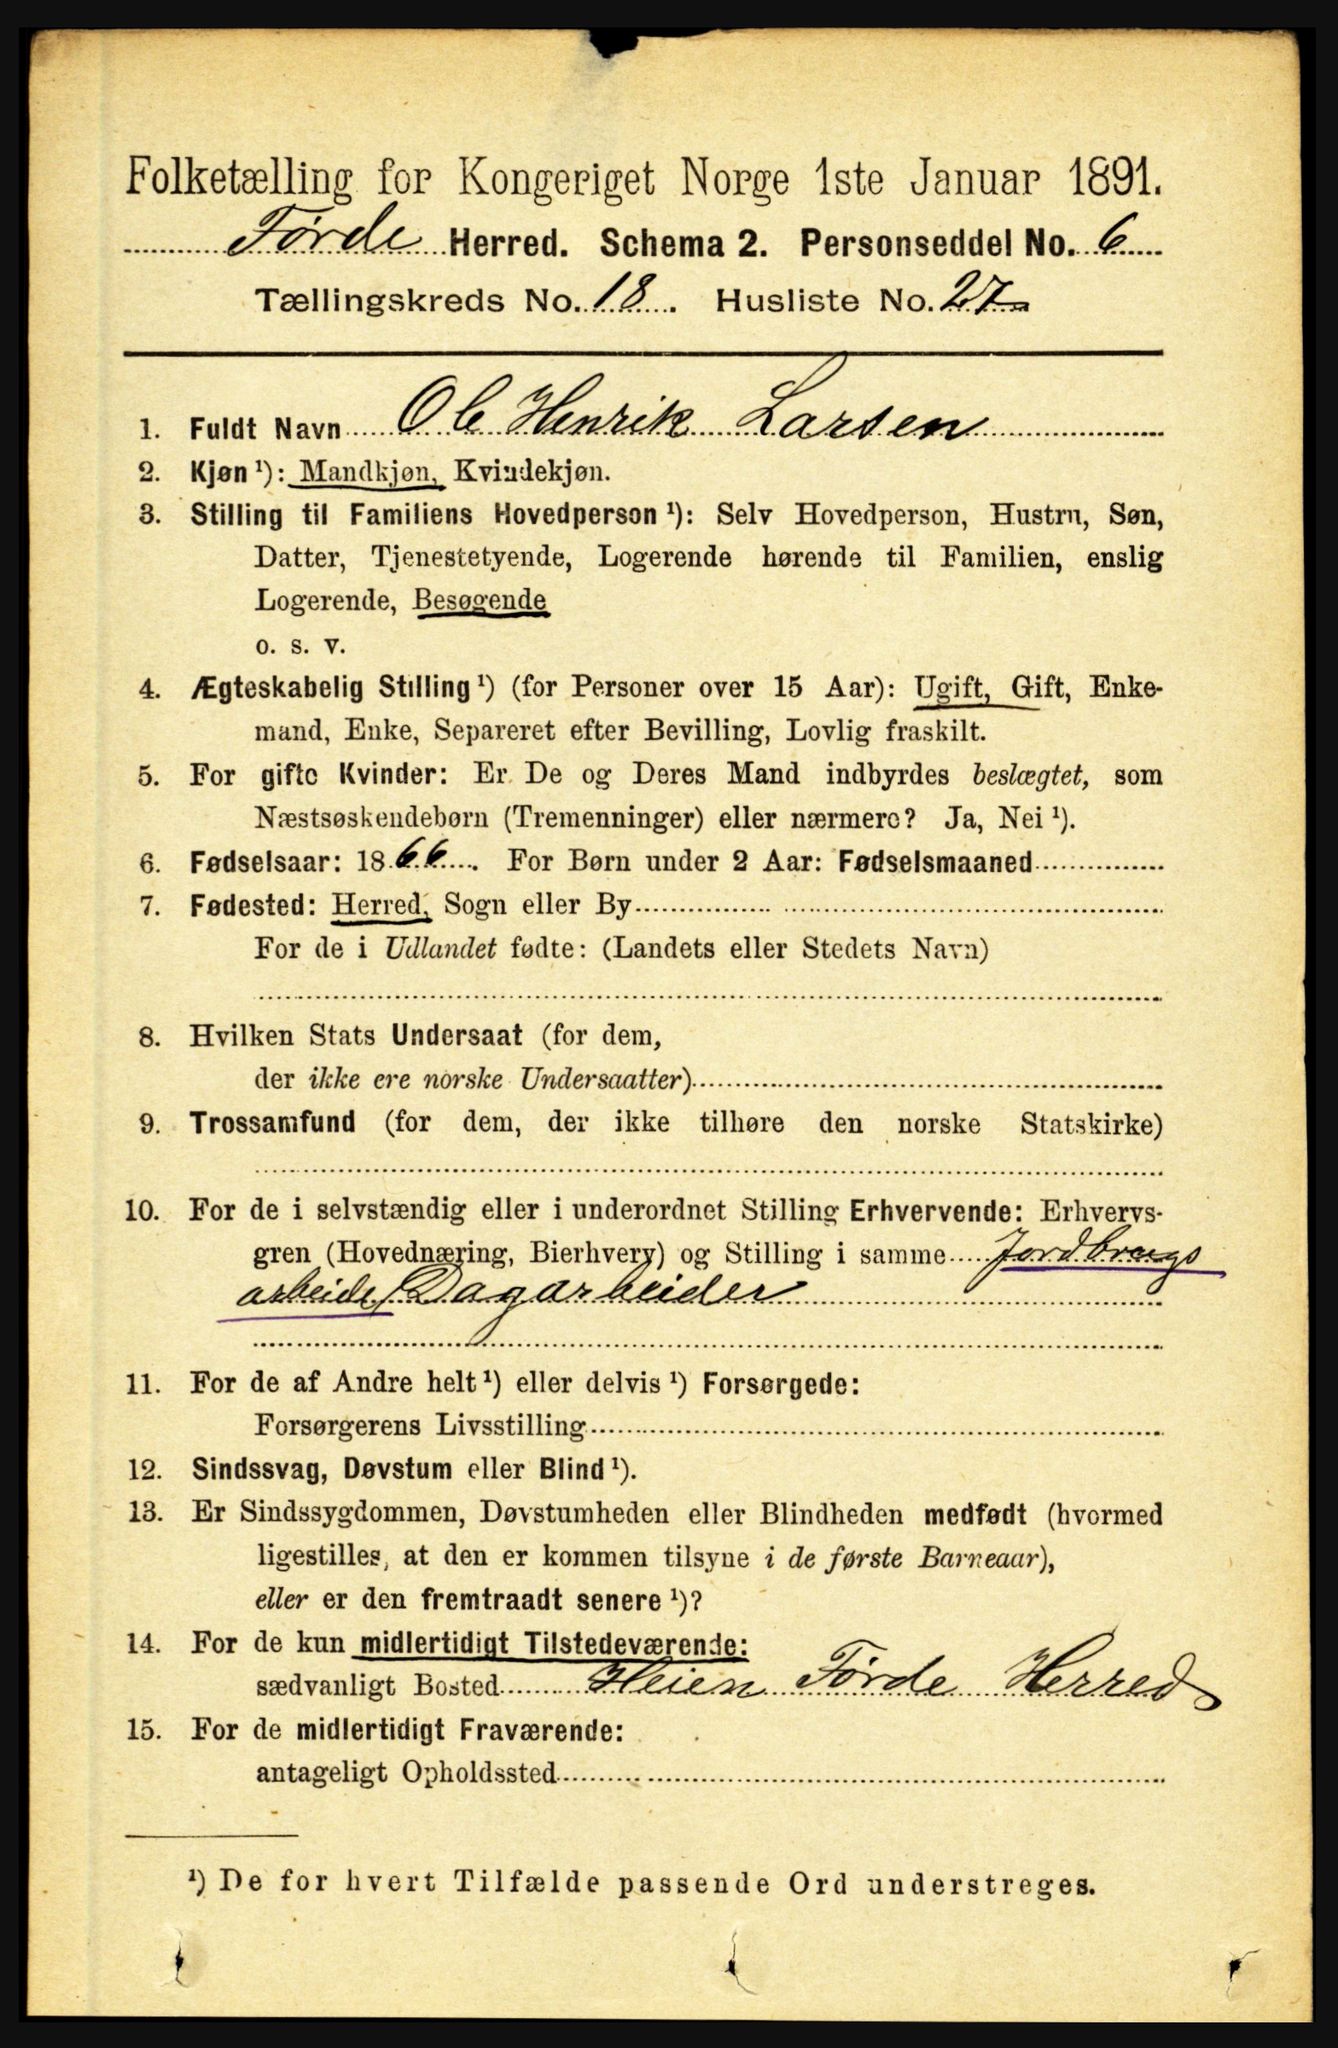 Folketælling for Kongeriget Norge 1ste Januar 1891.
Førde Herred. Schema 2. Personseddel No. 6
Tællingskreds No. 18. Husliste No. 27
1. Fuldt Navn Ole Henrik Larsen
2. Kjøn ¹): Mandkjøn, Kvindekjøn.
3. Stilling til Familiens Hovedperson ¹): Selv Hovedperson, Hustru, Søn,
Datter, Tjenestetyende, Logerende hørende til Familien, enslig
Logerende, Besøgende
o. s. v.
4. Ægteskabelig Stilling ¹) (for Personer over 15 Aar): Ugift, Gift, Enke-
mand, Enke, Separeret efter Bevilling, Lovlig fraskilt.
5. For gifte Kvinder: Er De og Deres Mand indbyrdes beslægtet, som
Næstsøskendebørn (Tremenninger) eller nærmere? Ja, Nei ¹).
6. Fødselsaar: 1866. For Børn under 2 Aar: Fødselsmaaned
7. Fødested: Herred, Sogn eller By
For de i Udlandet fødte: (Landets eller Stedets Navn)
8. Hvilken Stats Undersaat (for dem,
der ikke ere norske Undersaatter)
9. Trossamfund (for dem, der ikke tilhøre den norske Statskirke)
10. For de i selvstændig eller i underordnet Stilling Erhvervende: Erhvervs-
gren (Hovednæring, Bierhverv) og Stilling i samme Jordbrugs
arbeide, Dagarbeider
11. For de af Andre helt ¹) eller delvis ¹) Forsørgede:
Forsørgerens Livsstilling
12. Sindssvag, Døvstum eller Blind ¹).
13. Er Sindssygdommen, Døvstumheden eller Blindheden medfødt (hvormed
ligestilles, at den er kommen tilsyne i de første Barneaar),
eller er den fremtraadt senere ¹)?
14. For de kun midlertidigt Tilstedeværende:
sædvanligt Bosted Heien Førde Herred
15. For de midlertidigt Fraværende:
antageligt Opholdssted
¹) De for hvert Tilfælde passende Ord understreges.